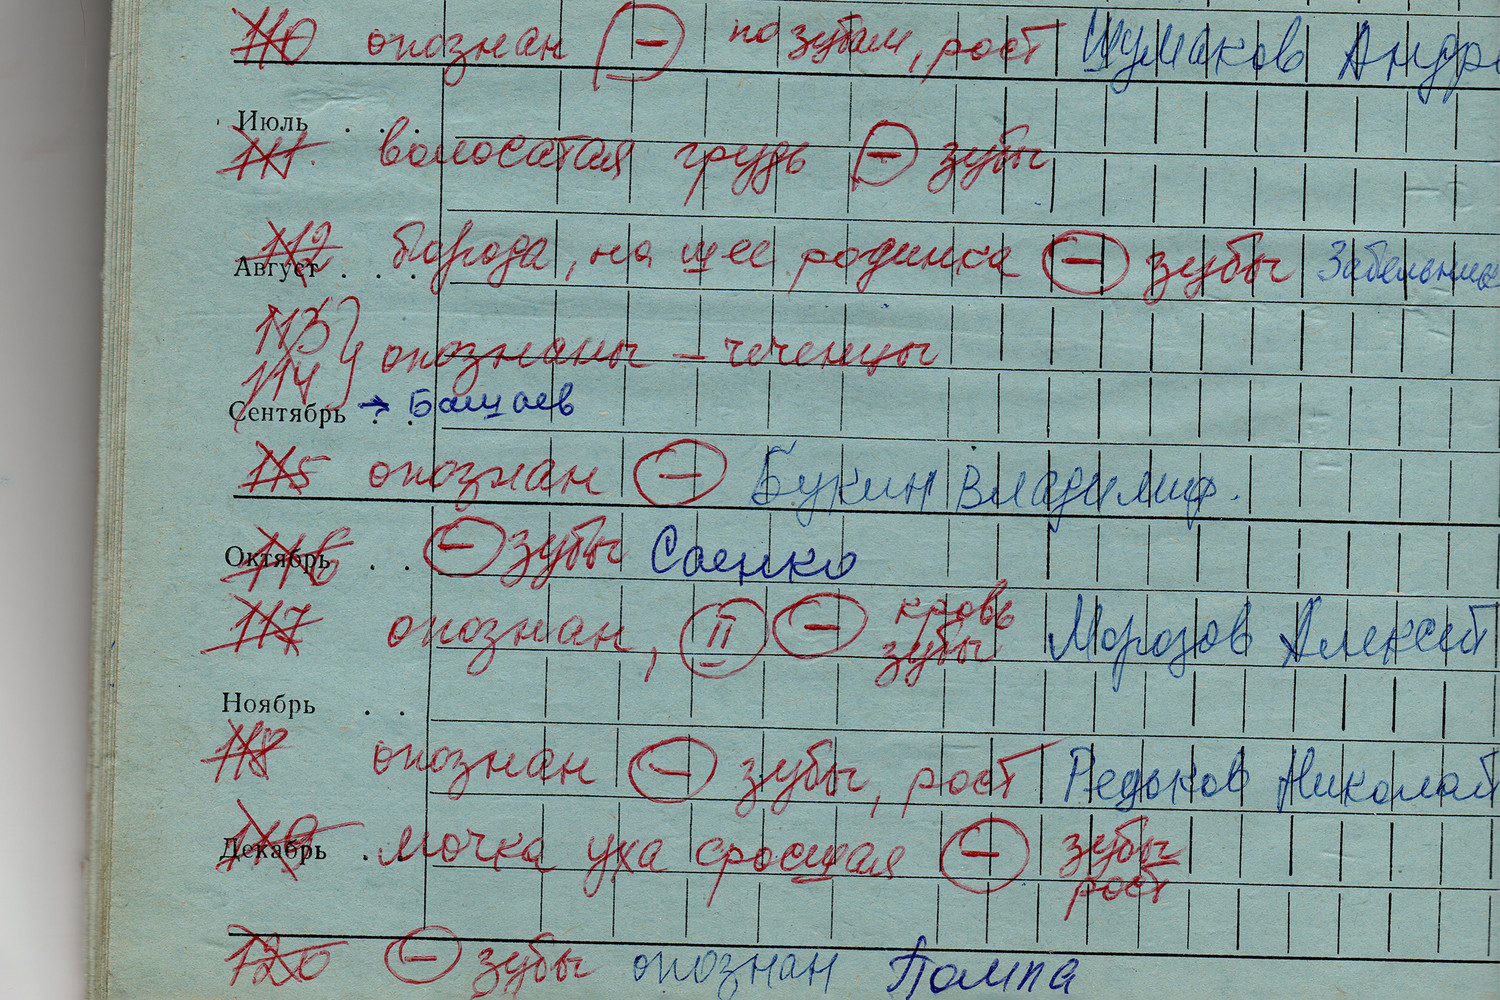 110 опознан (−) по зубам, рост Шумаков Андре
Июль . . . .
111. волосатая грудь (−) зубы
112 борода, на шее родинка (−) зубы
Август . . . .
113
114 } опознаны – чеченцы
Сентябрь . . → Башаев
115 опознан (−) Букин Владимир.
Октябрь . .
116 (−) зубы Саенко
117 опознан, (II) (−) кровь зубы Морозов Алексей
Ноябрь . .
118 опознан (−) зубы, рост Николай
Декабрь . .
119 мочка уха сросшая (−) зубы рост
120 (−) зубы опознан Пампа